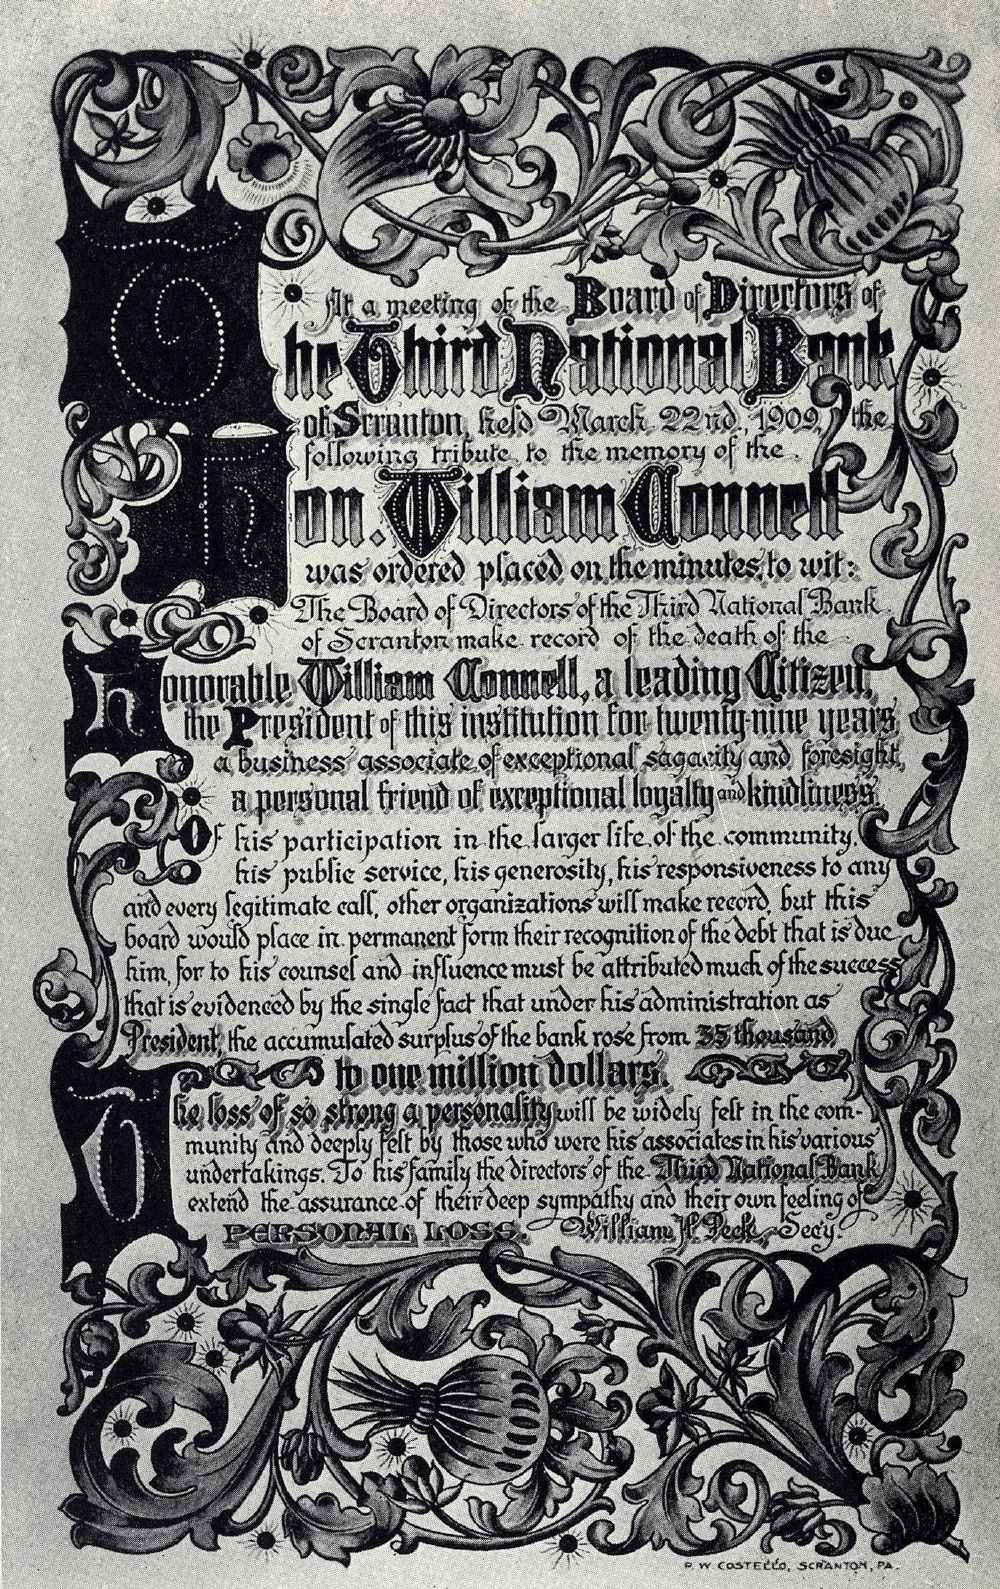 At a meeting of the Board of Directors of
The Third National Bank
of Scranton, held March 22nd., 1909, the
following tribute to the memory of the
Hon. William Connell
was ordered placed on the minutes, to wit:
The Board of Directors of the Third National Bank
of Scranton make record of the death of the
Honorable William Connell, a leading Citizen,
the President of this institution for twenty-nine years,
a business associate of exceptional sagacity and foresight,
a personal friend of exceptional loyalty and kindliness.
Of his participation in the larger life of the community,
his public service, his generosity, his responsiveness to any
and every legitimate call, other organizations will make record, but this
board would place in permanent form their recognition of the debt that is due
him, for to his counsel and influence must be attributed much of the success
that is evidenced by the single fact that under his administration as
President, the accumulated surplus of the bank rose from 35 thousand
to one million dollars.
The loss of so strong a personality will be widely felt in the com-
munity and deeply felt by those who were his associates in his various
undertakings. To his family the directors of the Third National Bank
extend the assurance of their deep sympathy and their own feeling of
PERSONAL LOSS. William H. Peck, Secy.
P. W. COSTELLO, SCRANTON, PA.